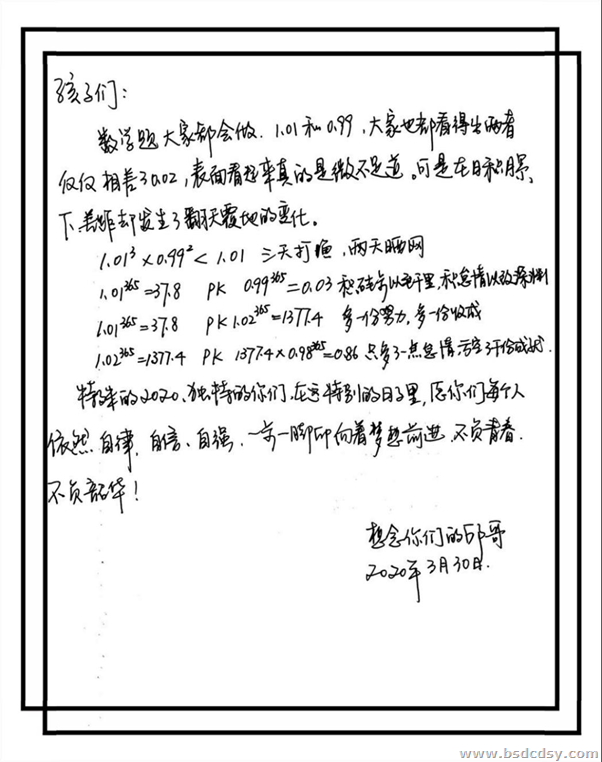 孩子们：
数学题大家都会做. 1.01和0.99，大家也都看得出两者
仅仅相差了0.02，表面看起来真的是微不足道。可是在日积月累
下，差距却发生了翻天覆地的变化。
1.01³×0.99²<1.01 三天打渔，两天晒网
1.01³⁶⁵=37.8 PK 0.99³⁶⁵=0.03 积跬步以至千里，积怠惰以致深渊
1.01³⁶⁵=37.8 PK 1.02³⁶⁵=1377.4 多一份努力，多一份收成
1.02³⁶⁵=1377.4 PK 1377.4×0.98³⁶⁵=0.86 只多了一点怠惰，亏空了千份成就.
特殊的2020、独特的你们，在这特别的日子里，愿你们每个人
依然自律、自信、自强，一步一脚印向着梦想前进，不负青春.
不负韶华！
想念你们的邱哥
2020年3月30日.
www.bsdcdsy.com